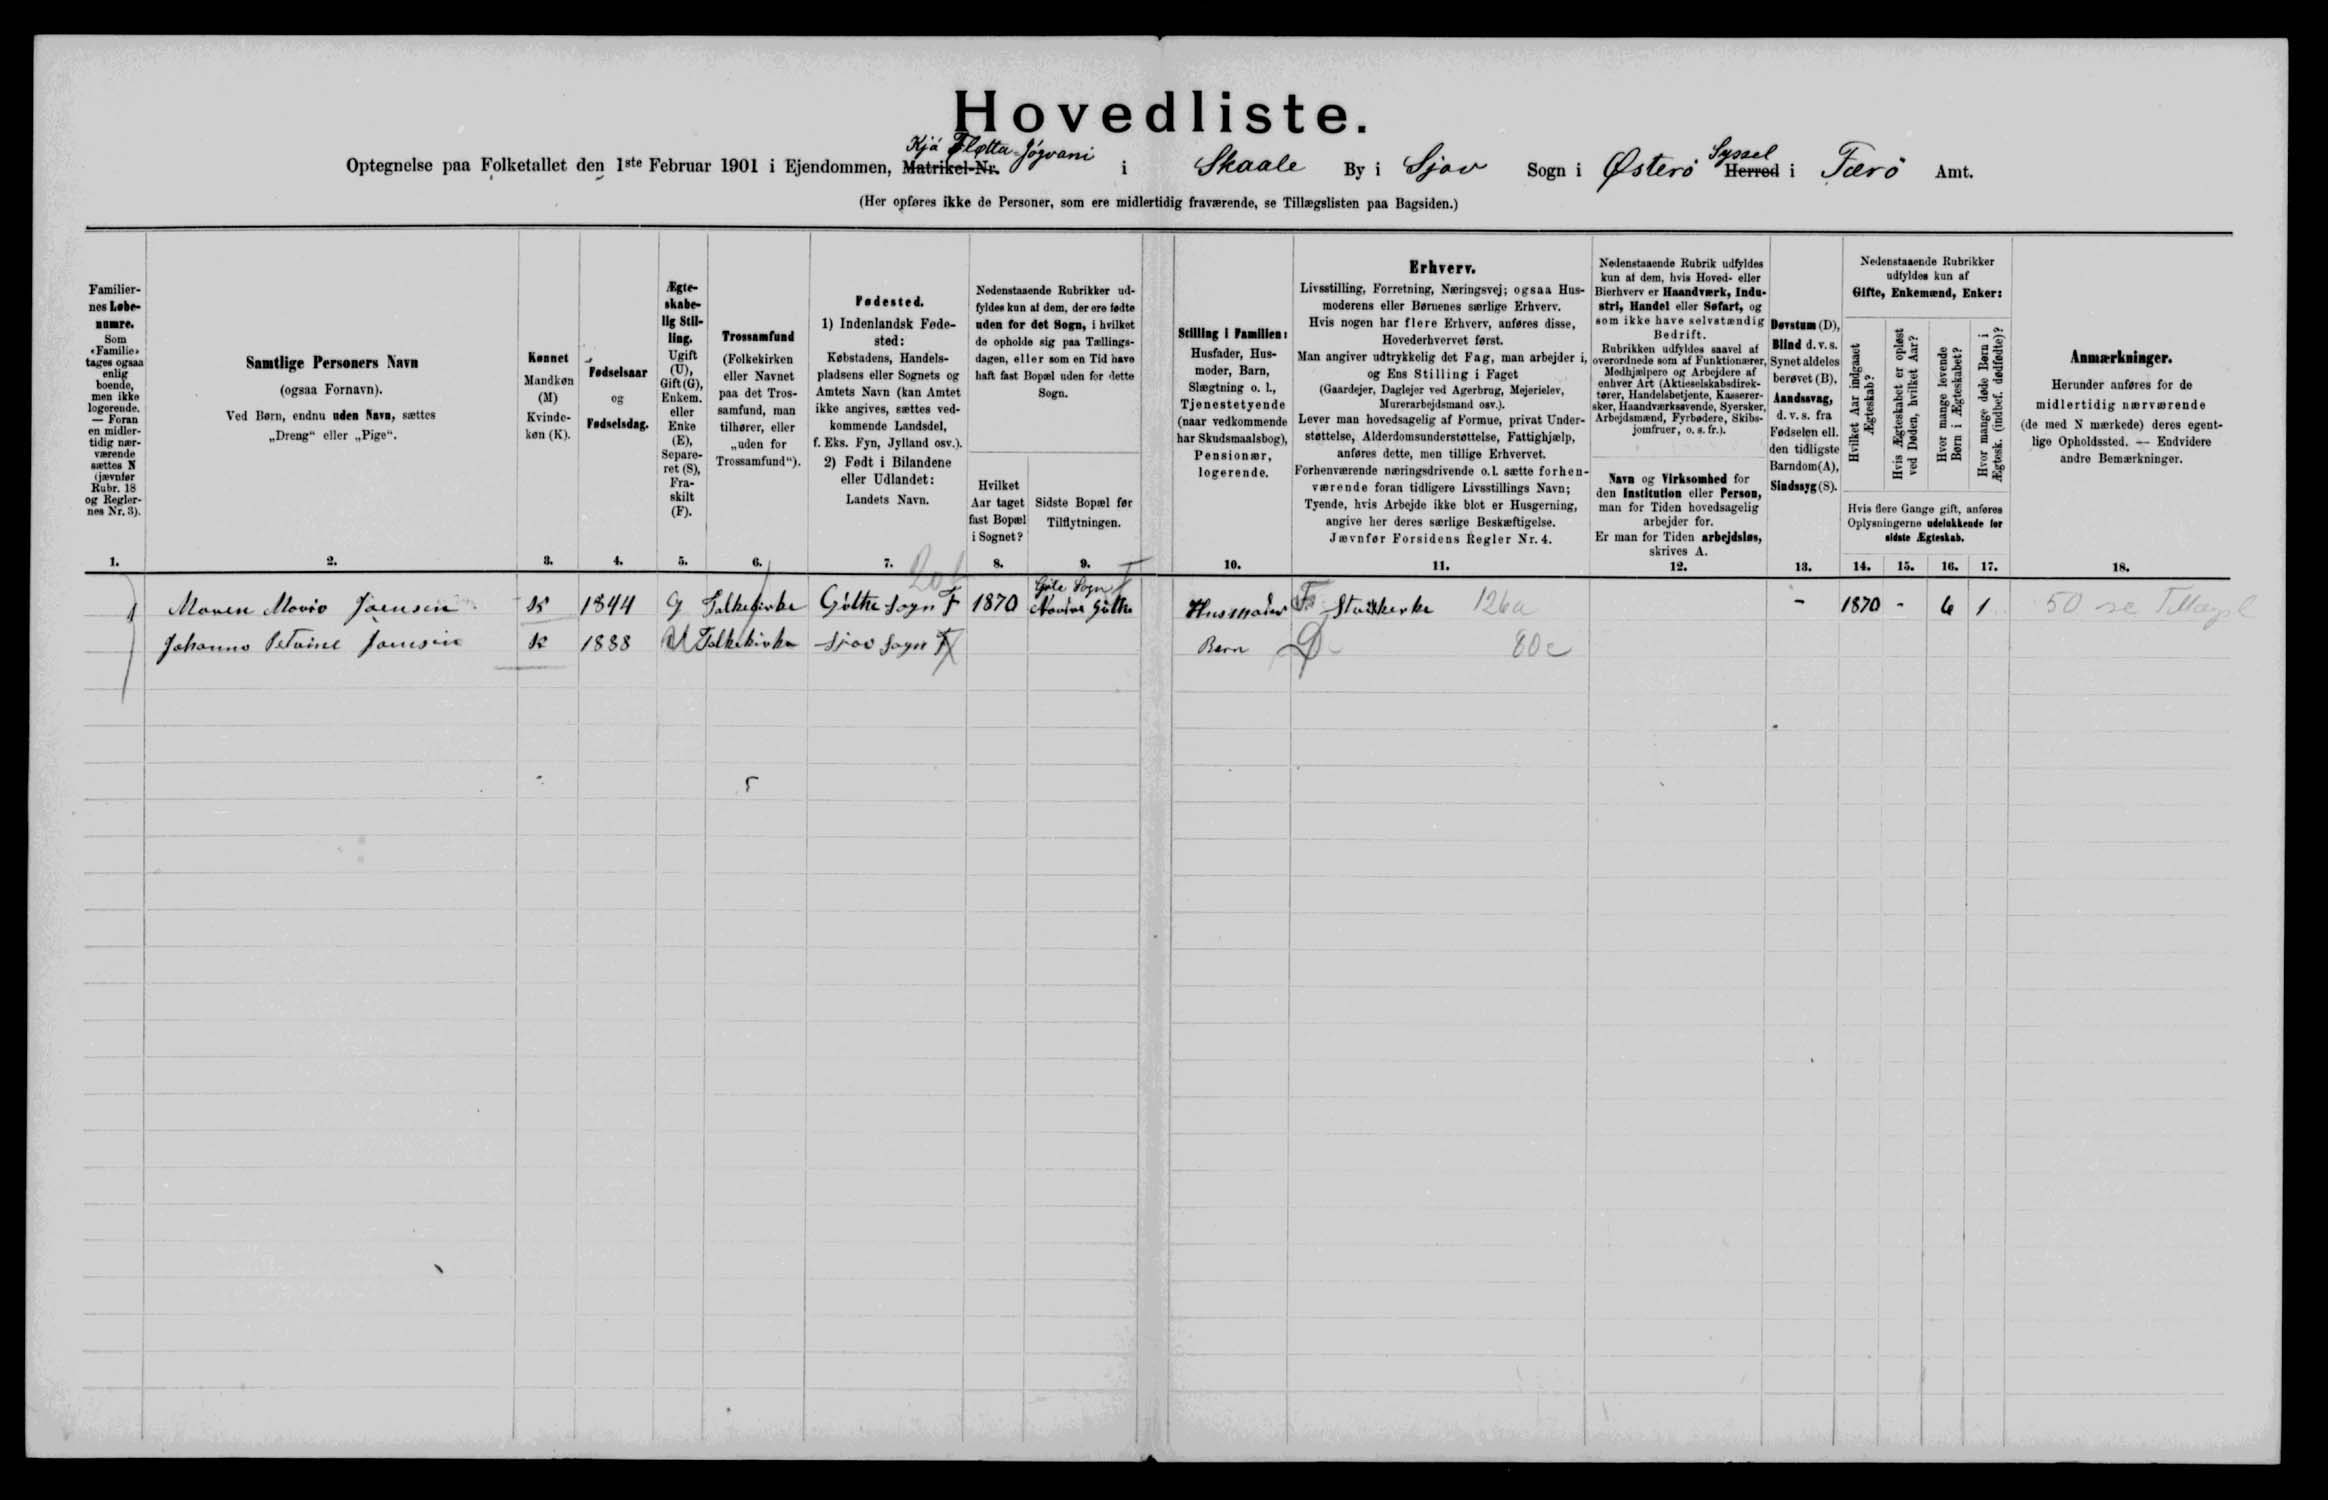 Hovedliste.
Kjá Flotta-Jógvani Syssel
Optegnelse paa Folketallet den 1ste Februar 1901 i Ejendommen, Matrikel-Nr. i Skaale By i Sjov Sogn i Østerö Herred i Færö Amt.
(Her opføres ikke de Personer, som ere midlertidig fraværende, se Tillægslisten paa Bagsiden.)
Familier-
nes Løbe-
numre.
Som
«Familie»
tages ogsaa
enlig
boende,
men ikke
logerende.
— Foran
en midler-
tidig nær-
værende
sættes N
(jævnfør
Rubr. 18
og Regler-
nes Nr. 3).
Samtlige Personers Navn
(ogsaa Fornavn).
Ved Børn, endnu uden Navn, sættes
„Dreng“ eller „Pige“.
Kønnet
Mandkøn
(M)
Kvinde-
køn (K).
Fødselsaar
og
Fødselsdag.
Ægte-
skabe-
lig Stil-
ling.
Ugift
(U),
Gift (G),
Enkem.
eller
Enke
(E),
Separe-
ret (S),
Fra-
skilt
(F).
Trossamfund
(Folkekirken
eller Navnet
paa det Tros-
samfund, man
tilhører, eller
„uden for
Trossamfund“).
Fødested.
1) Indenlandsk Føde-
sted:
Købstadens, Handels-
pladsens eller Sognets og
Amtets Navn (kan Amtet
ikke angives, sættes ved-
kommende Landsdel,
f. Eks. Fyn, Jylland osv.).
2) Født i Bilandene
eller Udlandet:
Landets Navn.
Nedenstaaende Rubrikker ud-
fyldes kun af dem, der ere fødte
uden for det Sogn, i hvilket
de opholde sig paa Tællings-
dagen, eller som en Tid have
haft fast Bopæl uden for dette
Sogn.
Hvilket
Aar taget
fast Bopæl
i Sognet?
Sidste Bopæl før
Tilflytningen.
Stilling i Familien:
Husfader, Hus-
moder, Barn,
Slægtning o. l.,
Tjenestetyende
(naar vedkommende
har Skudsmaalsbog),
Pensionær,
logerende.
Erhverv.
Livsstilling, Forretning, Næringsvej; ogsaa Hus-
moderens eller Børnenes særlige Erhverv.
Hvis nogen har flere Erhverv, anføres disse,
Hovederhvervet først.
Man angiver udtrykkelig det Fag, man arbejder i,
og Ens Stilling i Faget
(Gaardejer, Daglejer ved Agerbrug, Mejerielev,
Murerarbejdsmand osv.).
Lever man hovedsagelig af Formue, privat Under-
støttelse, Alderdomsunderstøttelse, Fattighjælp,
anføres dette, men tillige Erhvervet.
Forhenværende næringsdrivende o. l. sætte forhen-
værende foran tidligere Livsstillings Navn;
Tyende, hvis Arbejde ikke blot er Husgerning,
angive her deres særlige Beskæftigelse.
Jævnfør Forsidens Regler Nr. 4.
Nedenstaaende Rubrik udfyldes
kun af dem, hvis Hoved- eller
Bierhverv er Haandværk, Indu-
stri, Handel eller Søfart, og
som ikke have selvstændig
Bedrift.
Rubrikken udfyldes saavel af
overordnede som af Funktionærer,
Medhjælpere og Arbejdere af
enhver Art (Aktieselskabsdirek-
tører, Handelsbetjente, Kasserer-
sker, Haandværkssvende, Syersker,
Arbejdsmænd, Fyrbødere, Skibs-
jomfruer, o. s. fr.).
Navn og Virksomhed for
den Institution eller Person,
man for Tiden hovedsagelig
arbejder for.
Er man for Tiden arbejdsløs,
skrives A.
Døvstum (D),
Blind d. v. s.
Synet aldeles
berøvet (B),
Aandssvag,
d. v. s. fra
Fødselen ell.
den tidligste
Barndom (A),
Sindssyg (S).
Nedenstaaende Rubrikker
udfyldes kun af
Gifte, Enkemænd, Enker:
Hvilket Aar indgaaet
Ægteskab?
Hvis Ægteskabet er opløst
ved Døden, hvilket Aar?
Hvor mange levende
Børn i Ægteskabet?
Hvor mange døde Børn i
Ægtesk. (indbef. dødfødte)?
Hvis flere Gange gift, anføres
Oplysningerne udelukkende for
sidste Ægteskab.
Anmærkninger.
Herunder anføres for de
midlertidig nærværende
(de med N mærkede) deres egent-
lige Opholdssted. — Endvidere
andre Bemærkninger.
1. 2. 3. 4. 5. 6. 7. 8. 9. 10. 11. 12. 13. 14. 15. 16. 17. 18.
Göte Sogn
1 Maren Maria Joensen K 1844 G Folkekirke Göthe Sogn F 1870 Göthe Husmoder 126a - 1870 - 6 1 50 se Tillægsl
Johanna Petrine Joensen K 1888 U Folkekirke Sjov Sogn F Barn D 80c